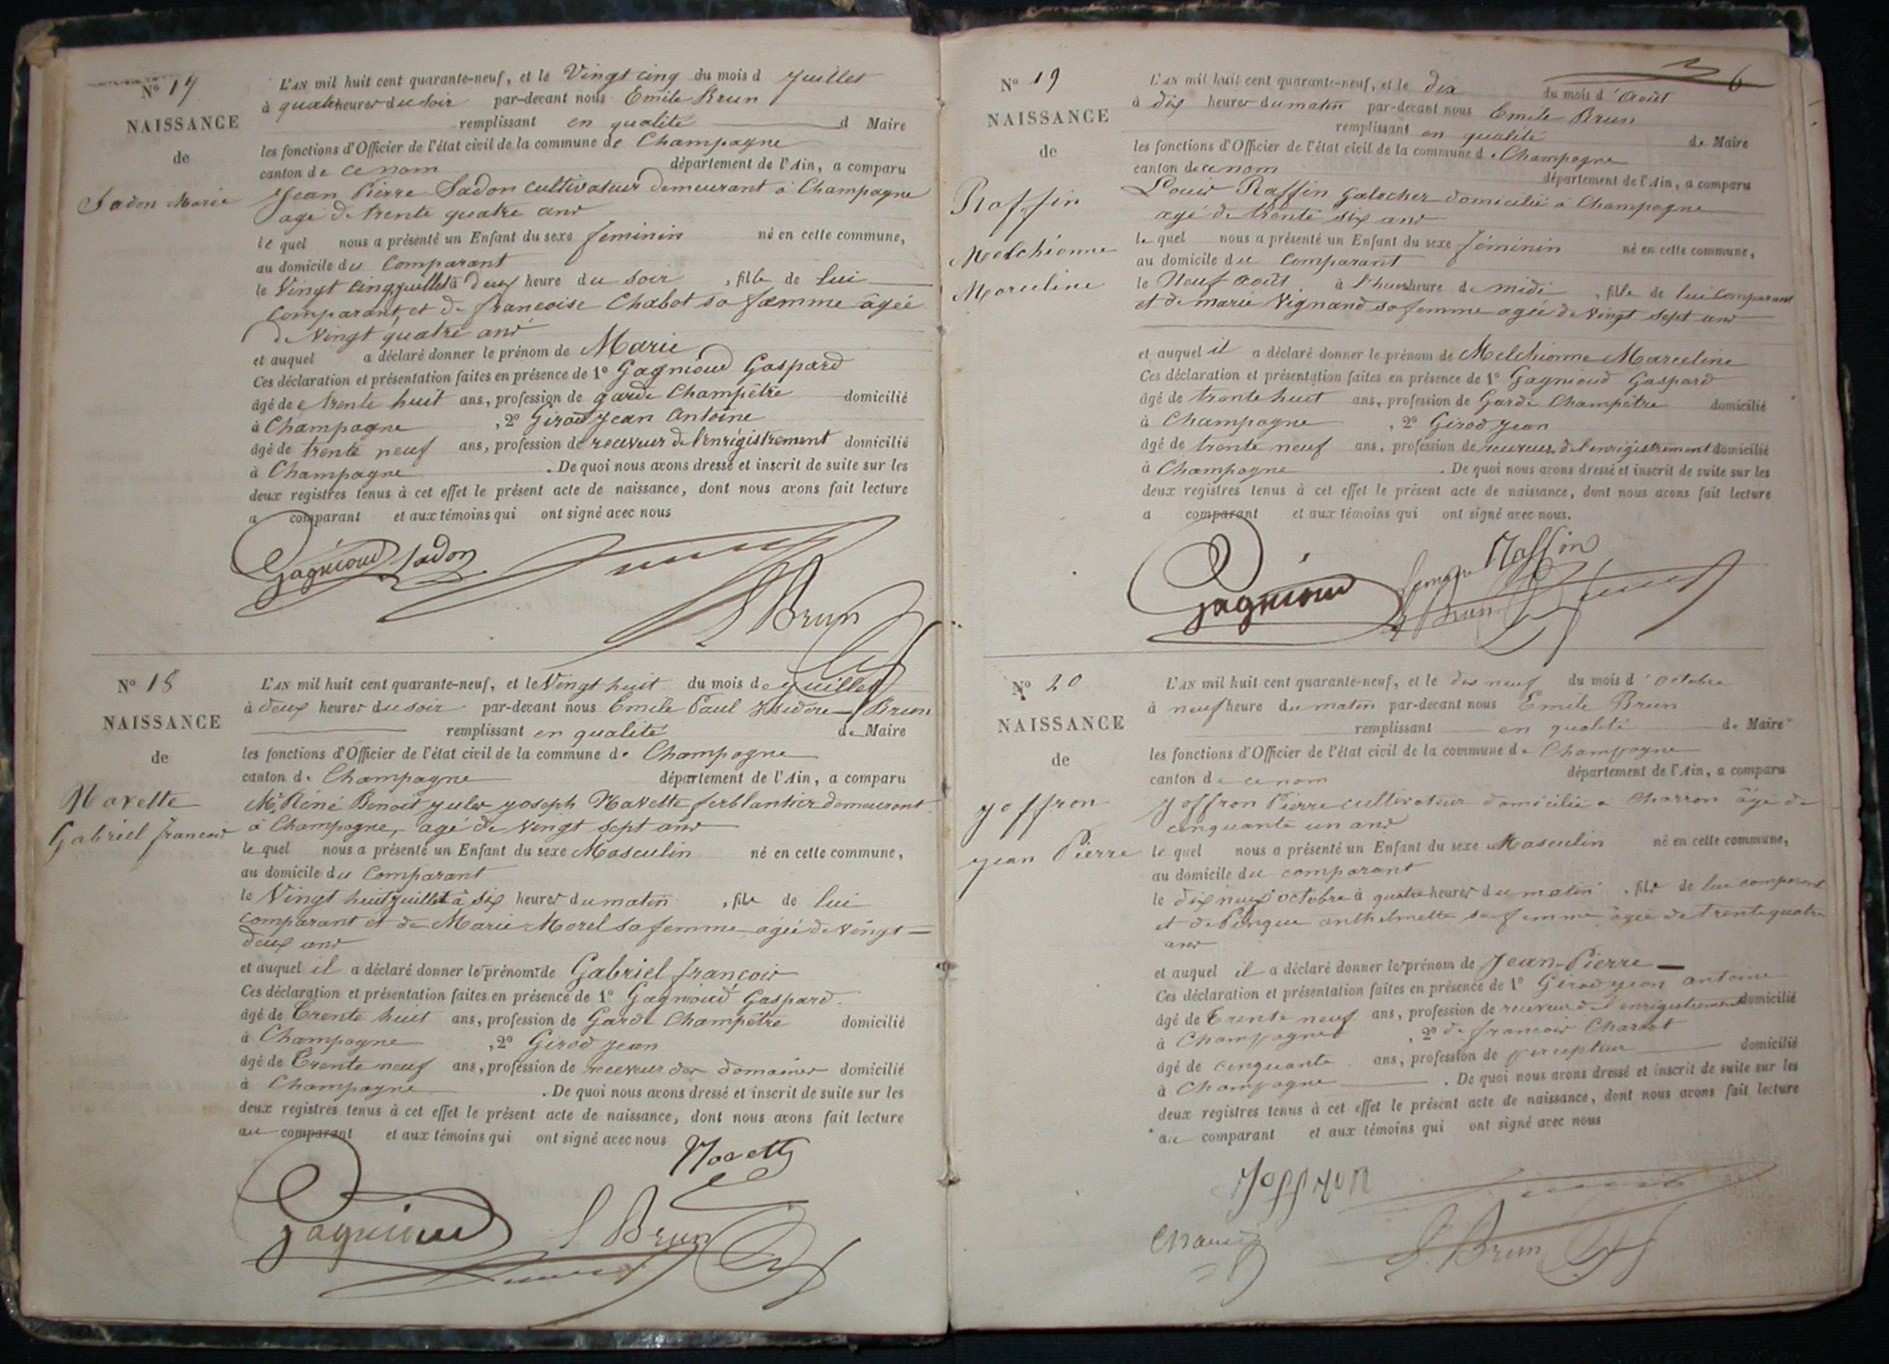 No 17
NAISSANCE
de
Sadon Marie
L'AN mil huit cent quarante-neuf, et le Vingt cinq du mois d Juillet
à quatre heures du soir par-devant nous Emile Brun
remplissant en qualité d Maire
les fonctions d'Officier de l'état civil de la commune de Champagne
canton de ce nom département de l'Ain, a comparu
Jean Pierre Sadon cultivateur demeurant à Champagne
agé de trente quatre ans
le quel nous a présenté un Enfant du sexe feminin né en cette commune,
au domicile du Comparant
le Vingt cinq juillet à deux heure du soir, fille de lui
Comparant, et de francoise Chabot sa femme âgée
de Vingt quatre ans
et auquel a déclaré donner le prénom de Marie
Ces déclaration et présentation faites en présence de 1º Gagnioud Gaspard
âgé de trente huit ans, profession de garde Champêtre domicilié
à Champagne, 2º Girod Jean Antoine
âgé de trente neuf ans, profession de receveur de l'enrégistrement domicilié
à Champagne. De quoi nous avons dressé et inscrit de suite sur les
deux registres tenus à cet effet le présent acte de naissance, dont nous avons fait lecture
a comparant et aux témoins qui ont signé avec nous
Gagnioud Sadon
Brun
No 18
NAISSANCE
de
Navette
Gabriel francois
L'AN mil huit cent quarante-neuf, et le Vingt huit du mois de Juillet
à deux heures du soir par-devant nous Emile Paul Isidore Brun
remplissant en qualité de Maire
les fonctions d'Officier de l'état civil de la commune de Champagne
canton de Champagne département de l'Ain, a comparu
Mr Réné Benoit Jules Joseph Navette ferblantier demeurant
à Champagne, agé de Vingt sept ans
le quel nous a présenté un Enfant du sexe Masculin né en cette commune,
au domicile du Comparant
le Vingt huit juillet à six heures du matin, fils de lui
comparant et de Marie Morel sa femme agée de Vingt
deux ans
et auquel il a déclaré donner le prénom de Gabriel françois
Ces déclaration et présentation faites en présence de 1º Gagnioud Gaspard.
âgé de Trente huit ans, profession de Garde Champêtre domicilié
à Champagne, 2º Girod Jean
âgé de Trente neuf ans, profession de receveur des domaines domicilié
à Champagne. De quoi nous avons dressé et inscrit de suite sur les
deux registres tenus à cet effet le présent acte de naissance, dont nous avons fait lecture
au comparant et aux témoins qui ont signé avec nous
Navette
Gagnioud Brun
6
No 19
NAISSANCE
de
Raffin
Melchionne
Marceline
L'AN mil huit cent quarante-neuf, et le dix du mois d'Août
à dix heures du matin par-devant nous Emile Brun
remplissant en qualité de Maire
les fonctions d'Officier de l'état civil de la commune de Champagne
canton de ce nom département de l'Ain, a comparu
Louis Raffin galocher domicilié à Champagne
agé de trente six ans
le quel nous a présenté un Enfant du sexe féminin né en cette commune,
au domicile du Comparant
le Neuf Août à l'heure de midi, fille de lui Comparant
et de marie Vignand sa femme agée de Vingt sept ans
et auquel il a déclaré donner le prénom de Melchionne Marceline
Ces déclaration et présentation faites en présence de 1º Gagnioud Gaspard
âgé de trente huit ans, profession de Garde Champêtre domicilié
à Champagne, 2º Girod Jean
âgé de trente neuf ans, profession de receveur de l'enrégistrement domicilié
à Champagne. De quoi nous avons dressé et inscrit de suite sur les
deux registres tenus à cet effet le présent acte de naissance, dont nous avons fait lecture
a comparant et aux témoins qui ont signé avec nous.
Raffin
Gagnioud Brun
No 20
NAISSANCE
de
Joffron
Jean Pierre
L'AN mil huit cent quarante-neuf, et le dix neuf du mois d'Octobre
à neuf heure du matin par-devant nous Emile Brun
remplissant en qualité de Maire
les fonctions d'Officier de l'état civil de la commune de Champagne
canton de ce nom département de l'Ain, a comparu
Joffron Pierre cultivateur domicilié a Charron âgé de
cinquante un ans
le quel nous a présenté un Enfant du sexe Masculin né en cette commune,
au domicile du comparant
le dix neuf octobre à quatre heures du matin, fils de lui comparant
et de Pingue anthelmette sa femme âgée de trente quatre
ans
et auquel il a déclaré donner le prénom de Jean-Pierre
Ces déclaration et présentation faites en présence de 1º Girod Jean antoine
âgé de Trente neuf ans, profession de receveur de l'enregistrement domicilié
à Champagne, 2º de francois Charlot
âgé de cinquante ans, profession de percepteur domicilié
à Champagne. De quoi nous avons dressé et inscrit de suite sur les
deux registres tenus à cet effet le présent acte de naissance, dont nous avons fait lecture
au comparant et aux témoins qui ont signé avec nous
Joffron
Brun